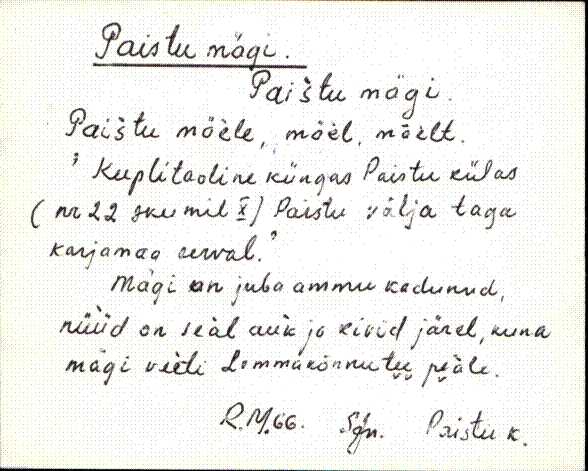 Paistu mägi.
Paištu mägi.
Paištu mäèle, mäèl, mäèlt.
"Kuplitaoline küngas Paistu külas
(nr 22 skeemil X) Paistu välja taga
karjamaa serval."
Mägi on juba ammu kadunud,
nüüd on seàl auk jo kivid järel, kuna
mägi veèti Lemmakõnnu teè peàle.
R.M. 66. Sjn. Paistu k.